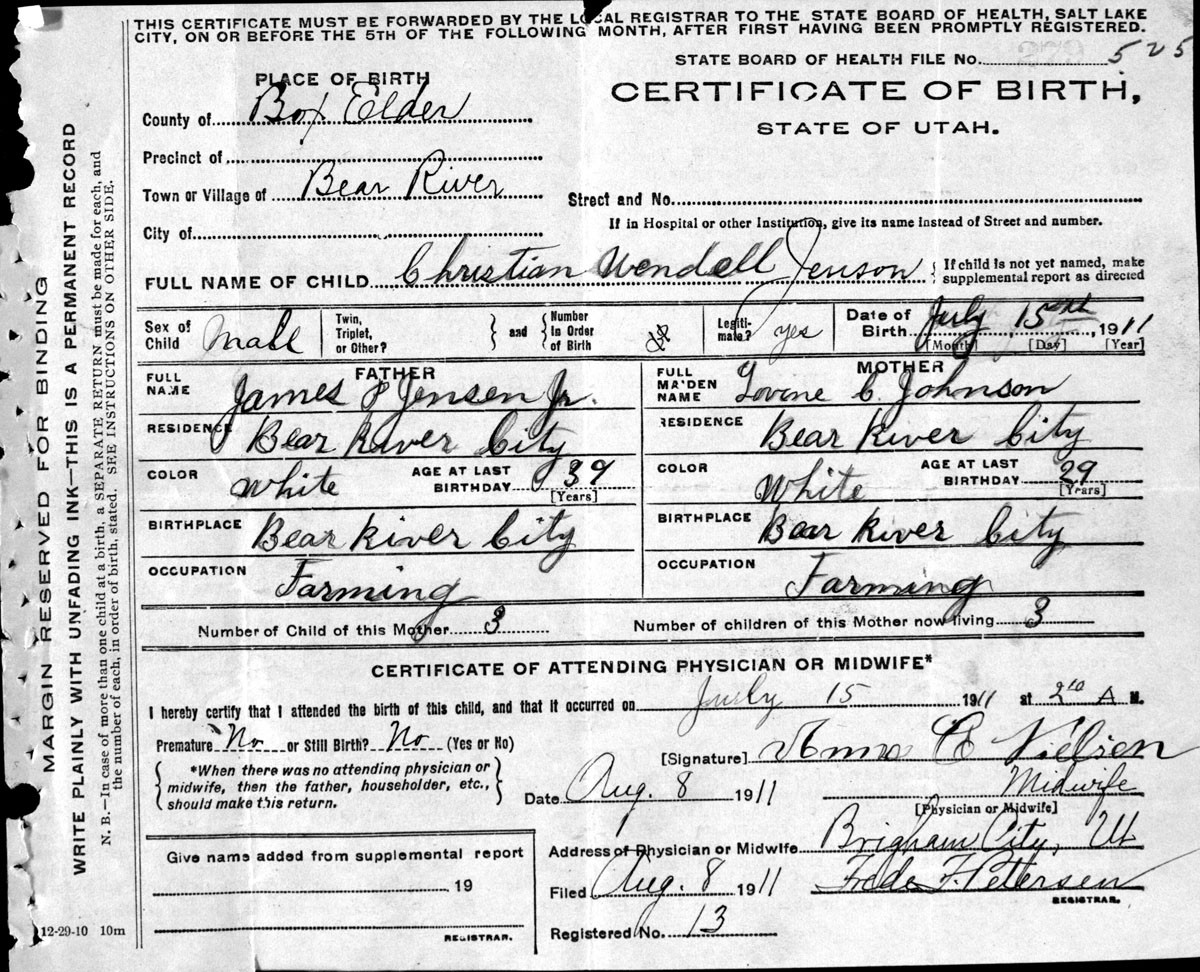 THIS CERTIFICATE MUST BE FORWARDED BY THE LOCAL REGISTRAR TO THE STATE BOARD OF HEALTH, SALT LAKE
CITY, ON OR BEFORE THE 5TH OF THE FOLLOWING MONTH, AFTER FIRST HAVING BEEN PROMPTLY REGISTERED.
STATE BOARD OF HEALTH FILE No. 525
PLACE OF BIRTH
CERTIFICATE OF BIRTH,
STATE OF UTAH.
County of Box Elder
Precinct of
Town or Village of Bear River
Street and No.
City of
If in Hospital or other Institution, give its name instead of Street and number.
FULL NAME OF CHILD Christian Wendell Jenson { If child is not yet named, make
supplemental report as directed
Sex of Child Male
Twin, Triplet, or Other? } and { Number In Order of Birth
Legitimate? yes
Date of Birth July 15th, 1911
[Month] [Day] [Year]
FATHER
FULL NAME James P Jensen Jr.
RESIDENCE Bear River City
COLOR White AGE AT LAST BIRTHDAY 39
[Years]
BIRTHPLACE Bear River City
OCCUPATION Farming
MOTHER
FULL MAIDEN NAME Lovine C. Johnson
RESIDENCE Bear River City
COLOR White AGE AT LAST BIRTHDAY 29
[Years]
BIRTHPLACE Bear River City
OCCUPATION Farming
Number of Child of this Mother 3 Number of children of this Mother now living 3
CERTIFICATE OF ATTENDING PHYSICIAN OR MIDWIFE*
I hereby certify that I attended the birth of this child, and that it occurred on July 15 1911 at 2 10 A M.
Premature No or Still Birth? No (Yes or No)
[Signature] Anna C Nielsen
{ *When there was no attending physician or
midwife, then the father, householder, etc.,
should make this return. }
Date Aug. 8 1911 Midwife
[Physician or Midwife]
Address of Physician or Midwife Brigham City, Ut
Filed Aug. 8 1911 F. Petersen
REGISTRAR.
Registered No. 13
Give name added from supplemental report
19
REGISTRAR.
12-29-10 10m
MARGIN RESERVED FOR BINDING
WRITE PLAINLY WITH UNFADING INK—THIS IS A PERMANENT RECORD
N. B.—In case of more than one child at a birth, a SEPARATE RETURN must be made for each, and
the number of each, in order of birth, stated. SEE INSTRUCTIONS ON OTHER SIDE.